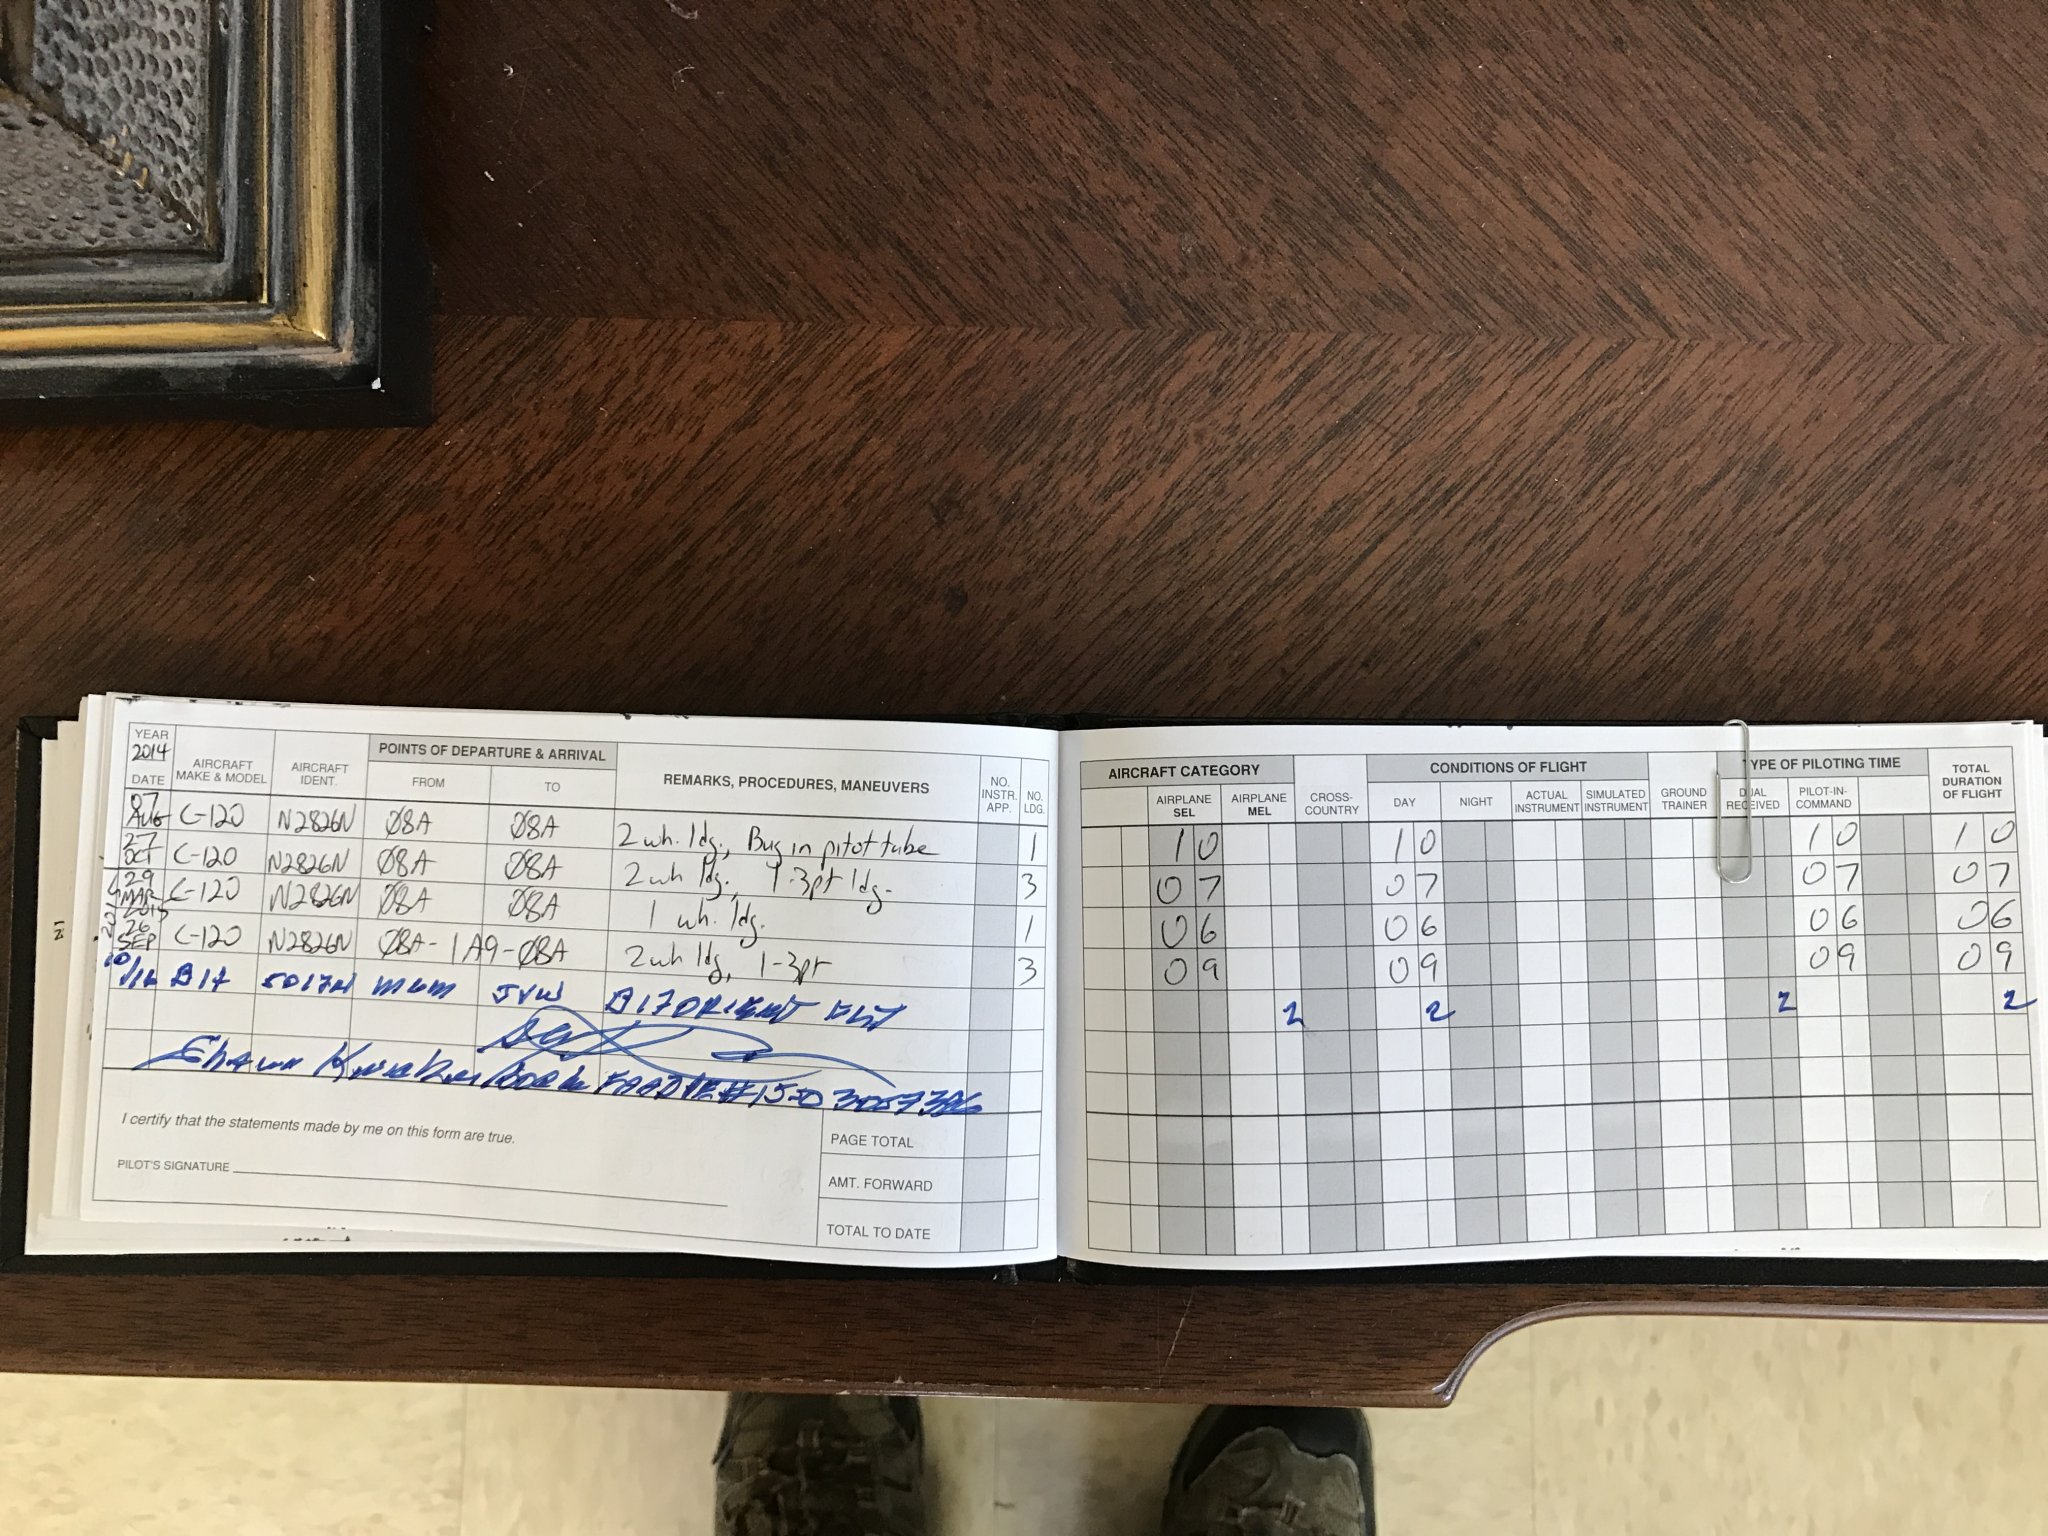 YEAR
2014
DATE
AIRCRAFT MAKE & MODEL
AIRCRAFT IDENT.
POINTS OF DEPARTURE & ARRIVAL
FROM
TO
REMARKS, PROCEDURES, MANEUVERS
NO. INSTR. APP.
NO. LDG.
AIRCRAFT CATEGORY
AIRPLANE SEL
AIRPLANE MEL
CROSS-COUNTRY
CONDITIONS OF FLIGHT
DAY
NIGHT
ACTUAL INSTRUMENT
SIMULATED INSTRUMENT
GROUND TRAINER
TYPE OF PILOTING TIME
DUAL RECEIVED
PILOT-IN-COMMAND
TOTAL DURATION OF FLIGHT
07 AUG C-120 N2826N Ø8A Ø8A 2 wh. ldg., Bug in pitot tube 1 1 0 1 0 1 0 1 0
27 OCT C-120 N2826N Ø8A Ø8A 2 wh ldg., 1-3pt ldg. 3 0 7 0 7 0 7 0 7
29 MAR 2015 C-120 N2826N Ø8A Ø8A 1 wh. ldg. 1 0 6 0 6 0 6 0 6
26 SEP C-120 N2826N Ø8A-1A9-Ø8A 2 wh ldg, 1-3pt 3 0 9 0 9 0 9 0 9
10/16 B17 5017N MGM JVW B17 FLT 2 2 2 2
Shawn
I certify that the statements made by me on this form are true.
PILOT'S SIGNATURE
PAGE TOTAL
AMT. FORWARD
TOTAL TO DATE